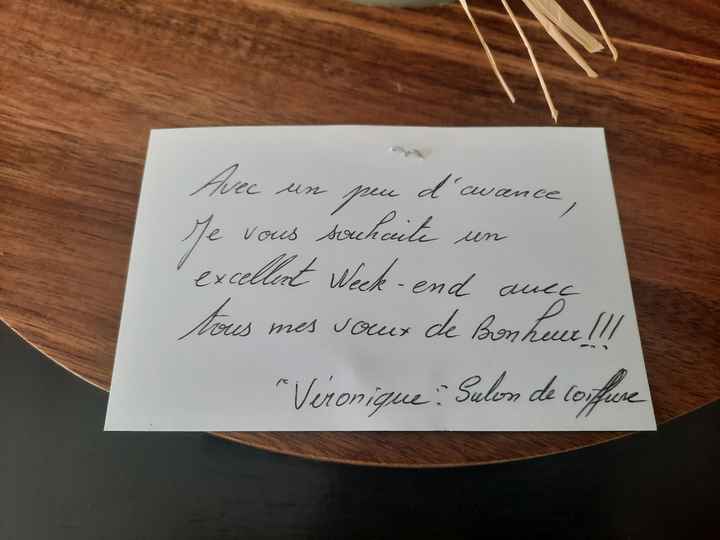 Avec un peu d'avance,
Je vous souhaite un
excellent Week-end avec
tous mes vœux de Bonheur!!!
"Véronique": Salon de coiffure